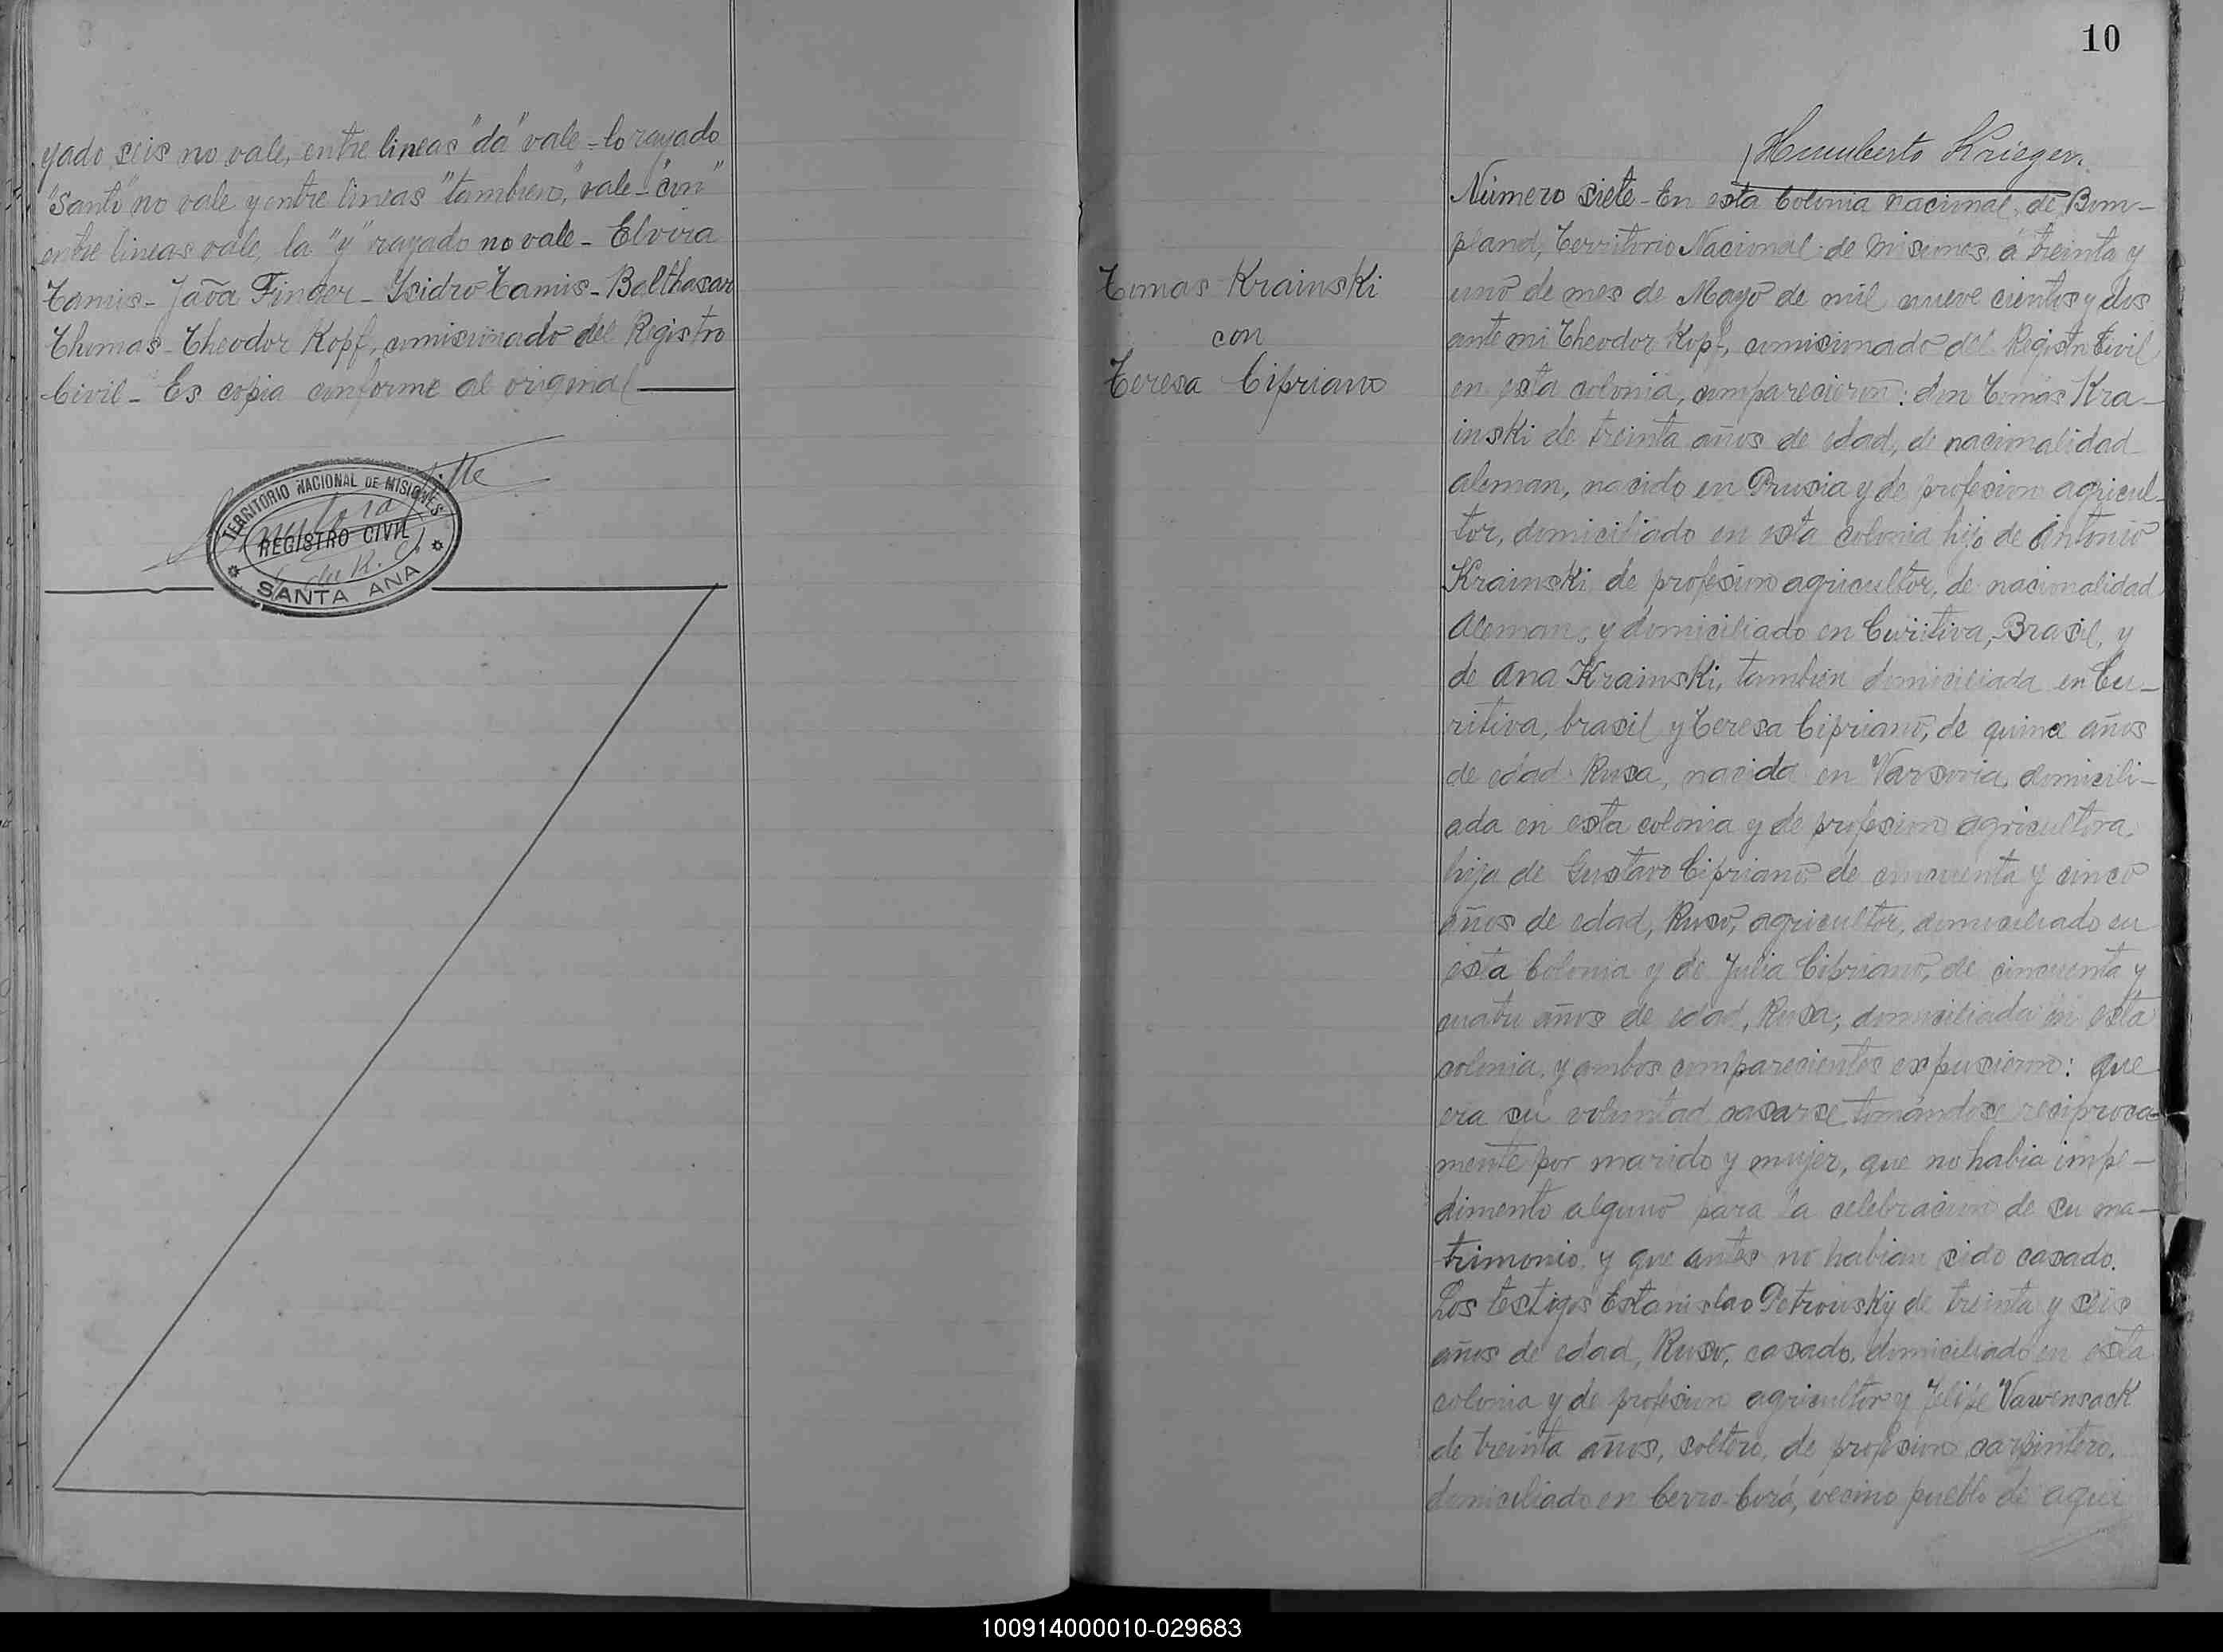 yado seis no vale, entre lineas "da" vale - lo rayado
"Santo" no vale y entre lineas "tambien," vale - "con"
entre lineas vale, la "y" rayado no vale - Elvira
Tamis - Jaõa Finger - Isidro Tamis - Balthasar
Thomas - Theodor Kopf, comisionado del Registro
Civil - Es copia conforme al original
TERRITORIO NACIONAL DE MISIONES
REGISTRO CIVIL
SANTA ANA
10
Humberto Krieger.
Tomas Krainski
con
Teresa Cipriano
Número siete - En esta Colonia nacional, de Bom-
pland, Territorio Nacional de Misiones, á treinta y
uno de mes de Mayo de mil nueve cientos y dos
ante mi Theodor Kopf, comisionado del Registro Civil
en esta colonia, comparecieron: don Tomas Kra-
inski de treinta años de edad, de nacionalidad
aleman, nacido en Prusia y de profesion agricul-
tor, domiciliado en esta colonia hijo de Antonio
Krainski de profesion agricultor, de nacionalidad
Aleman, y domiciliado en Curitiva, Brasil, y
de Ana Krainski, tambien domiciliada en Cu-
ritiva, brasil y Teresa Cipriano, de quince años
de edad Rusa, nacida en Varsovia, domicili-
ada en esta colonia y de profesion agricultora,
hija de Gustavo Cipriano de cincuenta y cinco
años de edad, Ruso, agricultor, domiciliado en
esta Colonia y de Julia Cipriano, de cincuenta y
cuatro años de edad, Rusa, domiciliada en esta
colonia, y ambos comparecientes expusieron: que
era su voluntad casarse tomándose reciproca-
mente por marido y mujer, que no habia impe-
dimento alguno para la celebracion de su ma-
trimonio y que antes no habian sido casado.
Los testigos Estanislao Petrowsky de treinta y seis
años de edad, Ruso, casado, domiciliado en esta
colonia y de profesion agricultor y Felipe Vawensack
de treinta años, soltero, de profesion carpintero,
domiciliado en Cerro-Corá, vecino pueblo de aqui
100914000010-029683